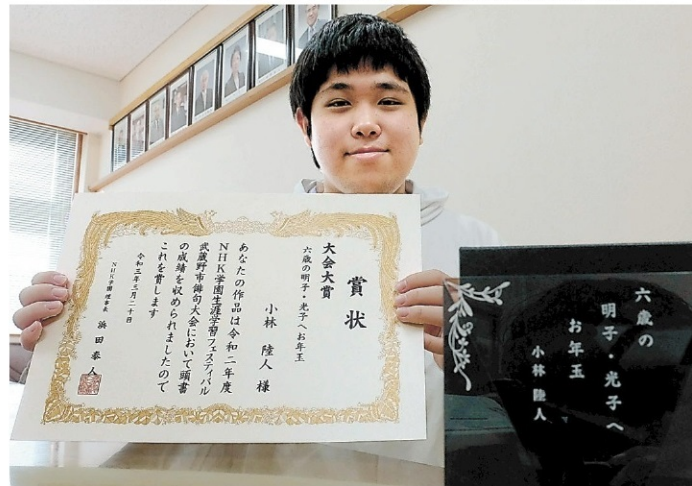 賞状
大会大賞
六歳の明子・光子へお年玉
小林 陸人 様
あなたの作品は令和二年度
NHK学園生涯学習フェスティバル
武蔵野市俳句大会において頭書
の成績を収められましたので
これを賞します
令和三年三月二十日
NHK学園 理事長 浜田泰人
六歳の
明子・光子へ
お年玉
小林 陸人